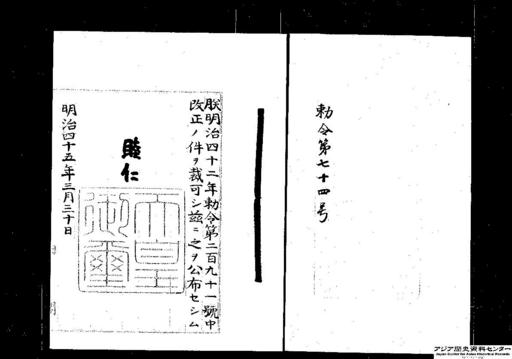 勅令第七十四号
朕明治四十二年勅令第二百九十一號中
改正ノ件ヲ裁可シ茲ニ之ヲ公布セシム
睦仁
天皇御璽
明治四十五年三月三十日
アジア歴史資料センター
Japan Center for Asian Historical Records